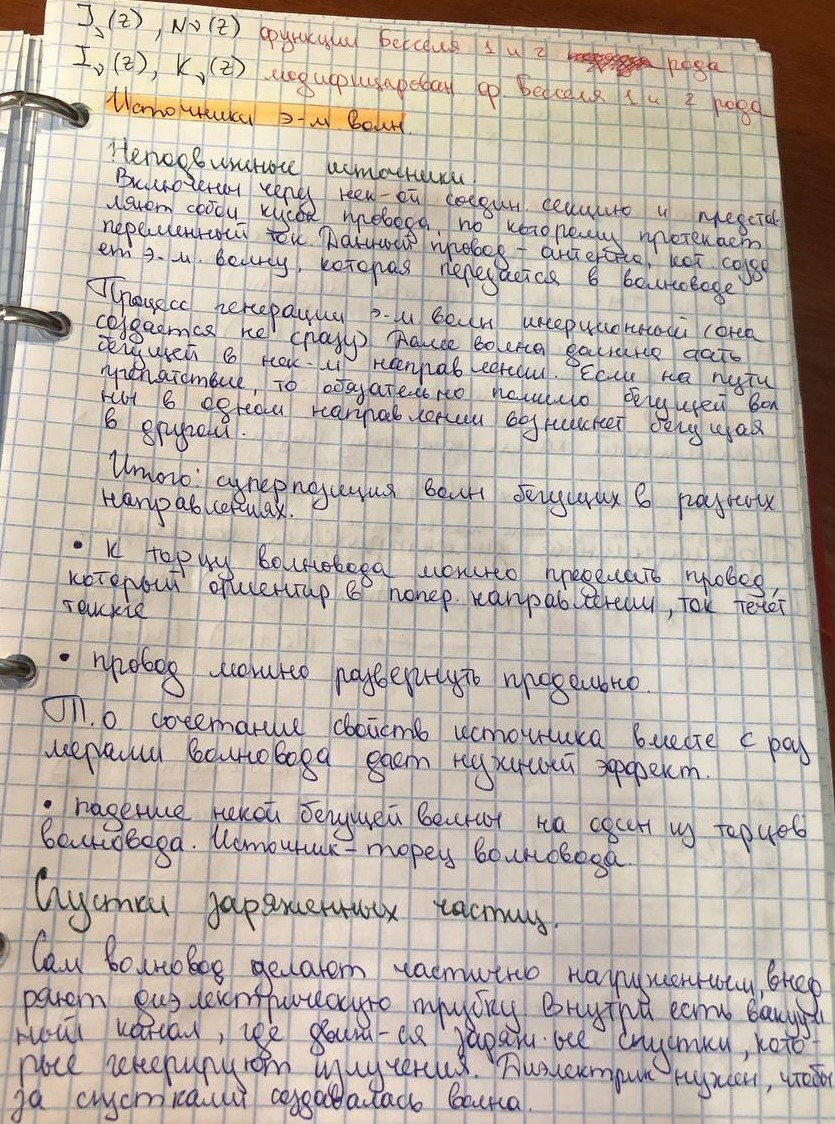 J_ν(z), N_ν(z) функции Бесселя 1 и 2 рода
I_ν(z), K_ν(z) модифицирован ф. Бесселя 1 и 2 рода
Источники э-м волн.
Неподвижные источники.
Включены через нек-ой соедин. секцию и представ
ляют собой кусок провода, по которому протекает
переменный ток. Данный провод - антенна, кот. созда
ет э.м. волну, которая передается в волноводе
Процесс генерации э-м волн инерционный (она
создается не сразу) Далее волна должна дать
бегущей в нек-м направлении. Если на пути
препятствие, то обязательно помимо бегущей вол
ны в одном направлении возникнет бегущая
в другом.
Итого: суперпозиция волн бегущих в разных
направлениях.
• к торцу волновода можно приделать провод,
который ориентир в попер. направлении, ток течёт
также
• провод можно развернуть продольно.
Т.о сочетание свойств источника вместе с раз
мерами волновода дает нужный эффект.
• падение некой бегущей волны на один из торцов
волновода. Источник - торец волновода.
Сгустки заряженных частиц.
Сам волновод делают частично нагруженным, внед
ряют диэлектрическую трубку. Внутри есть вакуум
ный канал, где движ-ся заряж-ые сгустки, кото-
рые генерируют излучения. Диэлектрик нужен, чтобы
за сгустками создавалась волна.